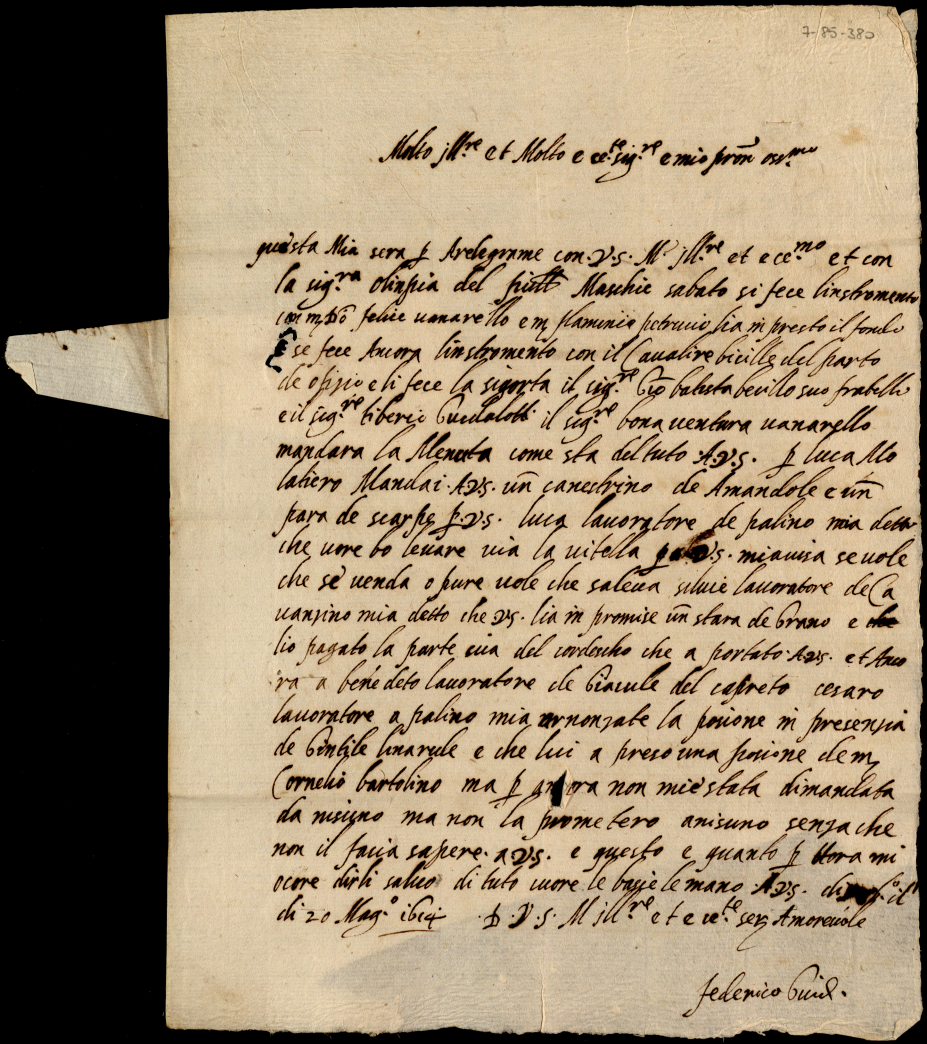 7-85-380
Molto jll.re et Molto e ce.te sig.re e mio pron oss.mo
questa Mia sera p Aralegrame con .V.S. M. jll.re et ecce.mo et con
la sig.ra olinpia del Maschie sabato si fece linstromento
felice vanarello e m flaminio petrucio in presto il
e se fece Ancora linstromento con il Cavalire del parto
de ofizio e li fece la sigorta il sig.re Gio batista suo fratello
e il sig.re tiberio il sig.re bona ventura vanarello
mandara la Menuta come sta del tuto A.V.S. p luca Mo
latiero Mandai .A.V.S. un canestrino de Amandole e un
para de scarpe p.V.S. luca lavoratore de palino mia detto
che vore bo levare via la vitella .V.S. mi avisa se vole
che se venda o pure vole che saleva silvie lavoratore de Ca
vanzino mia detto che V.S. lia in promise un stara de Grano e che
lio pagato la parte sua del cordescho che a portato .A.V.S. et Anco
ra a benedeto lavoratore de del capreto cesaro
lavoratore a palino mia la posione in presenzia
de Gintile e che lui a preso una posione de m
Cornelio bartolino ma p ancora non mie stata dimandata
da nisuno ma non la prometero a nisuno senza che
non il facia sapere .a V.S. e questo e quanto p hora mi
ocore dirli salvo di tuto cuore le bascie le mano .A.V.S. di
di 20 Mag.o D.V.S. M jll.re et e ce.te ser Amorevole
federico Guid.